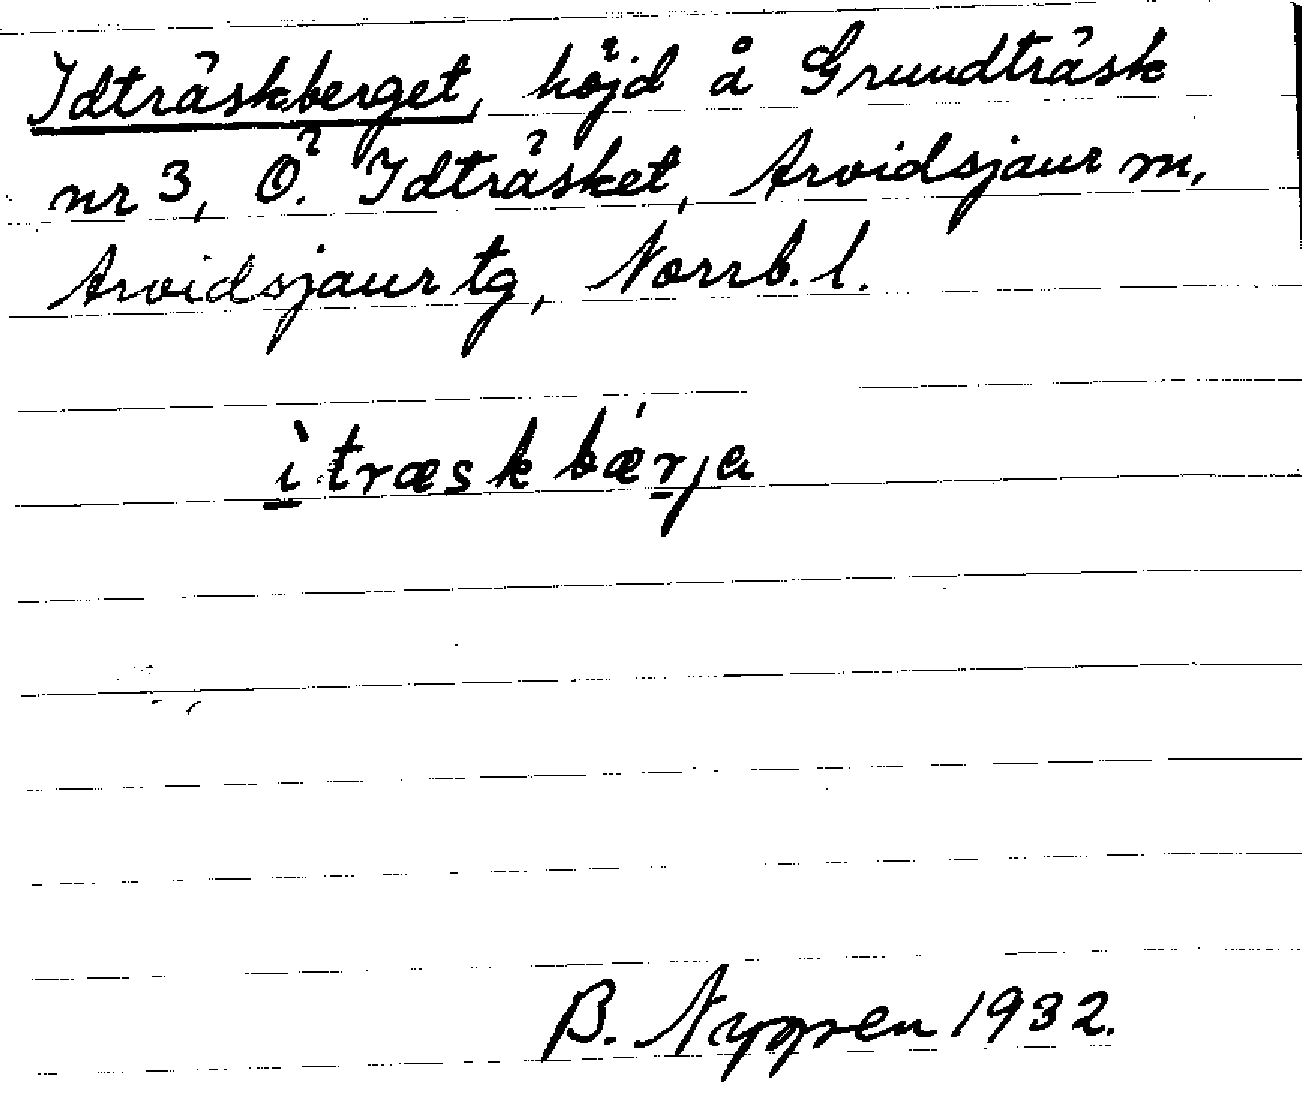 Idträskberget, höjd å Grundträsk
nr 3, Ö. Idträsket, Arvidsjaur sn,
Arvidsjaur tg, Norrb. l.
ì træsk bæ´rja
B. Nygren 1932.